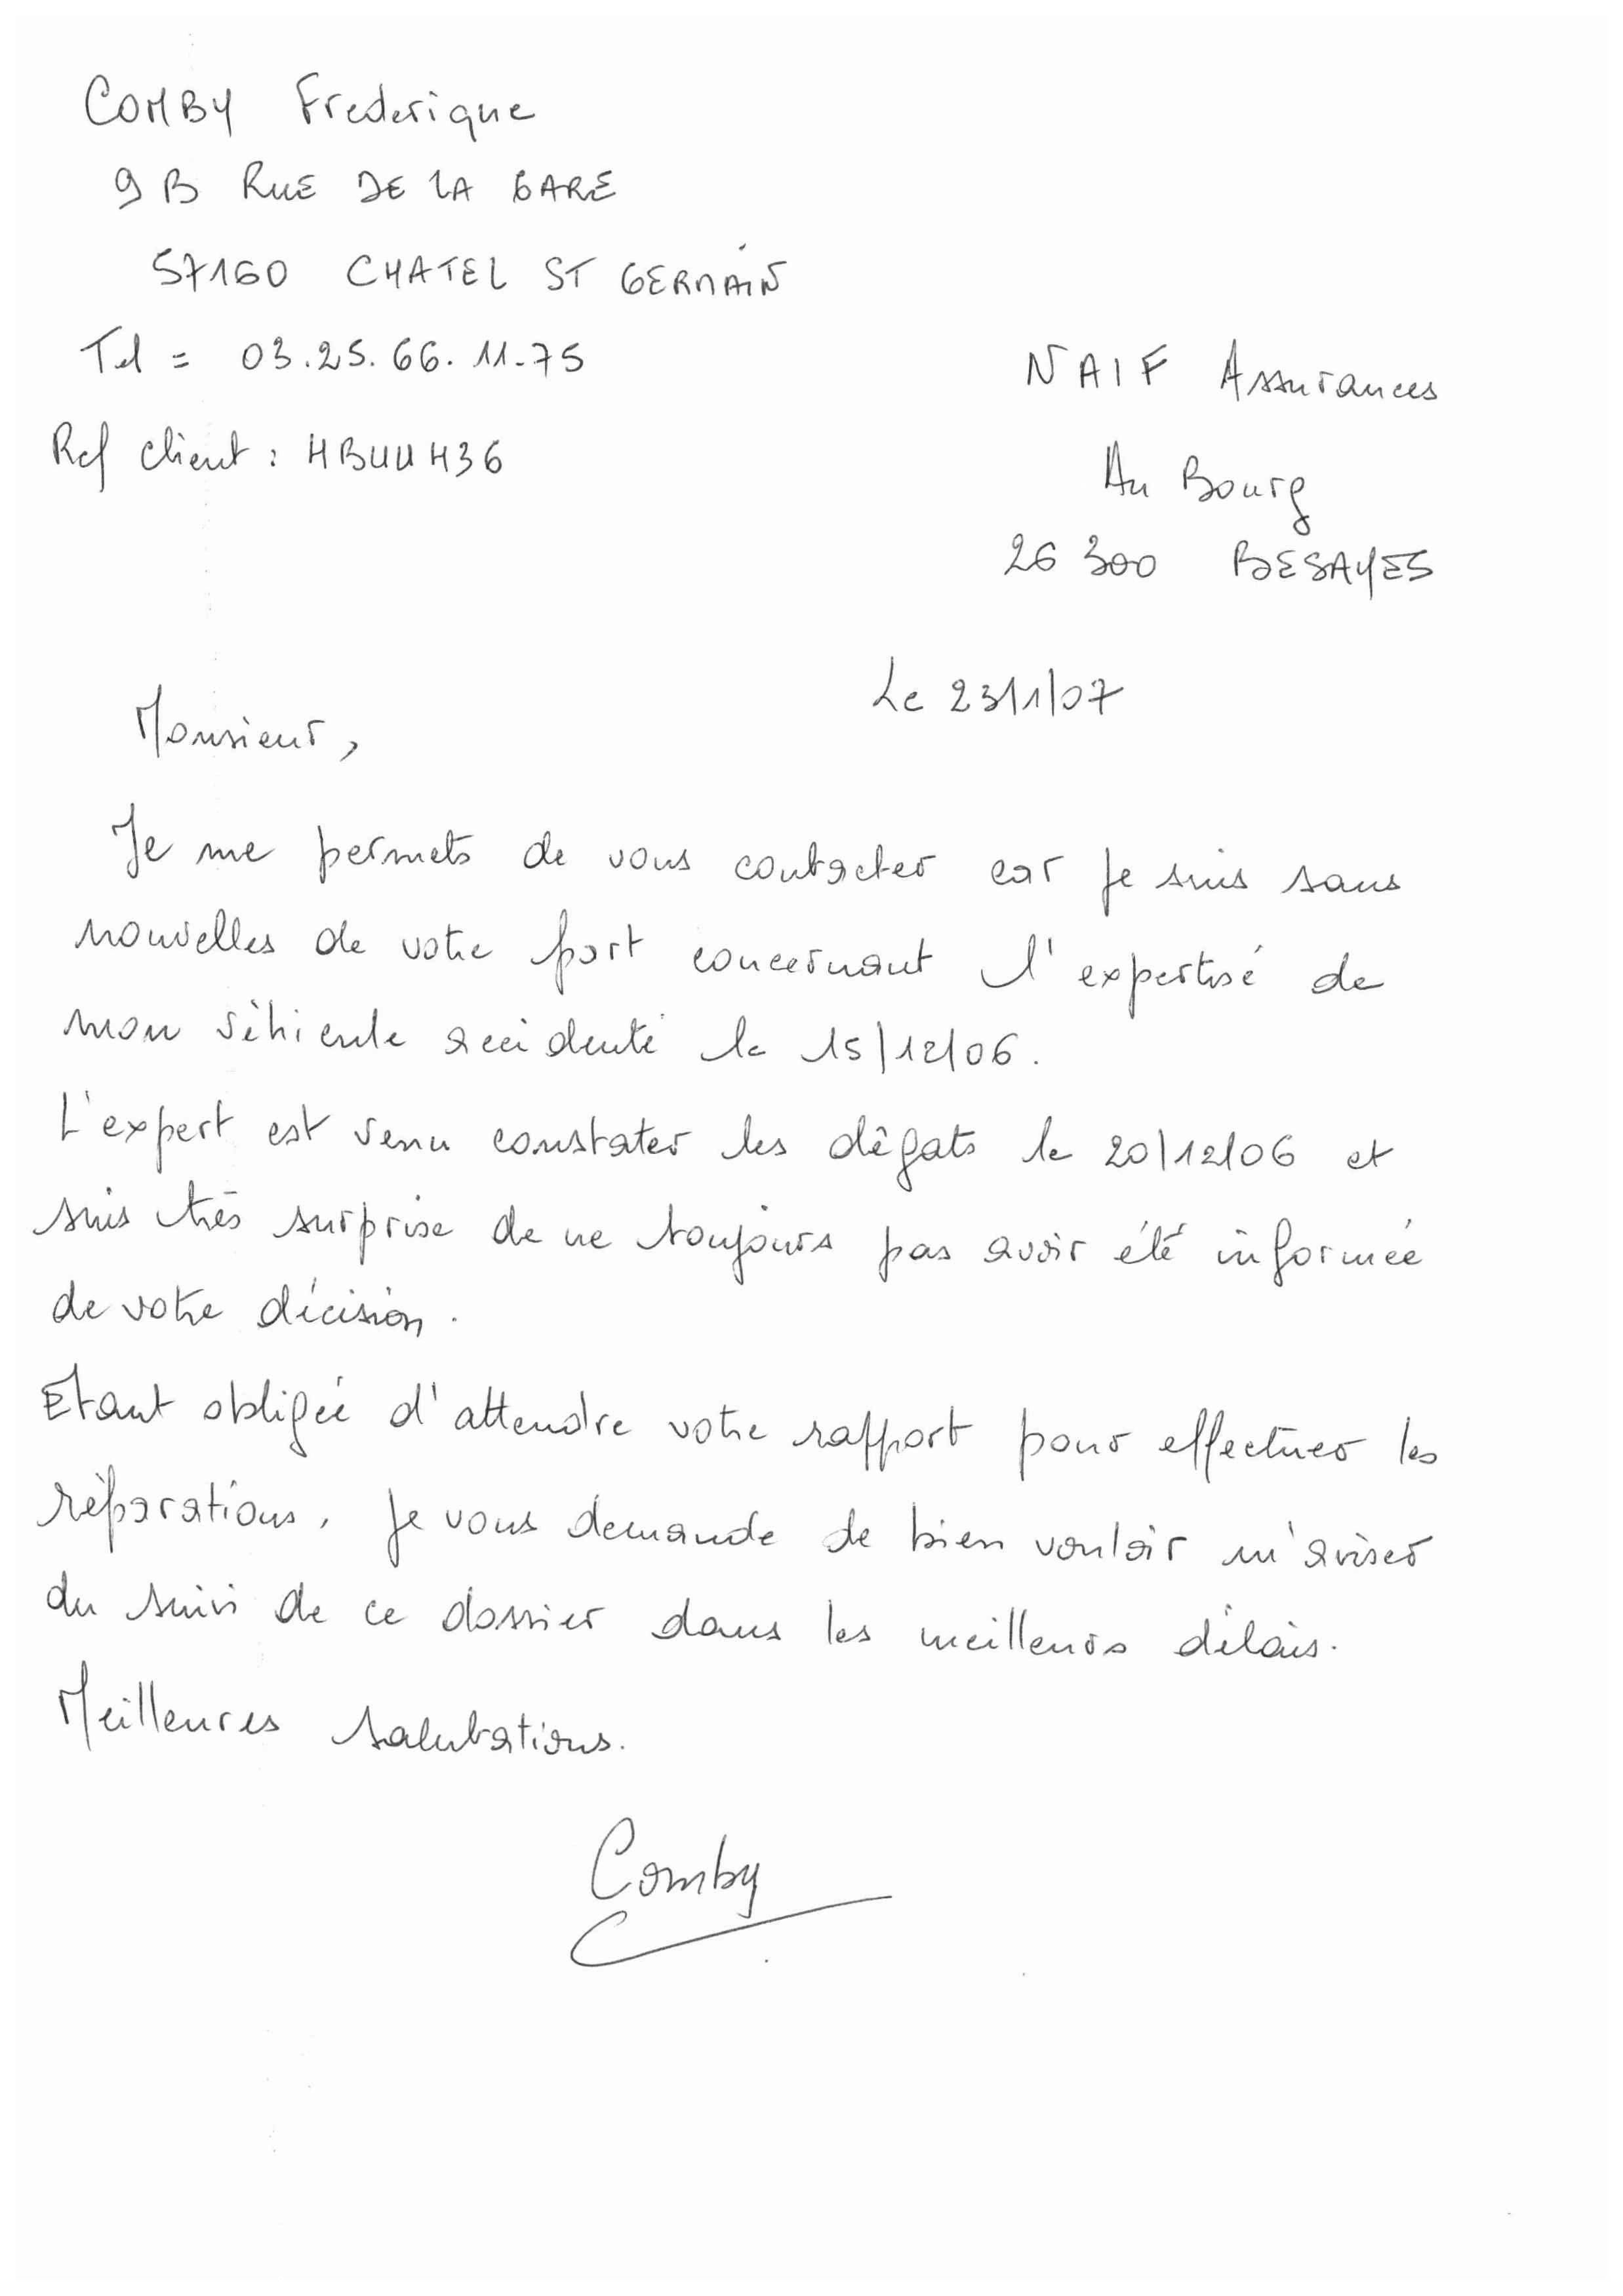 COMBY Frederique
9 B RUE DE LA GARE
57160 CHATEL ST GERMAIN
Tel = 03.25.66.11.75
NAIF Assurances
Ref client : HBUUH36
Au Bourg
26 300 BESAYES
Le 23/1/07
Monsieur,
Je me permets de vous contacter car je suis sans
nouvelles de votre part concernant l'expertisé de
mon véhicule accidenté le 15/12/06.
L'expert est venu constater les dégats le 20/12/06 et
suis très surprise de ne toujours pas avoir été informée
de votre décision.
Etant obligée d'attendre votre rapport pour effectuer les
réparations, je vous demande de bien vouloir m'aviser
du suivi de ce dossier dans les meilleurs délais.
Meilleures salutations.
Comby